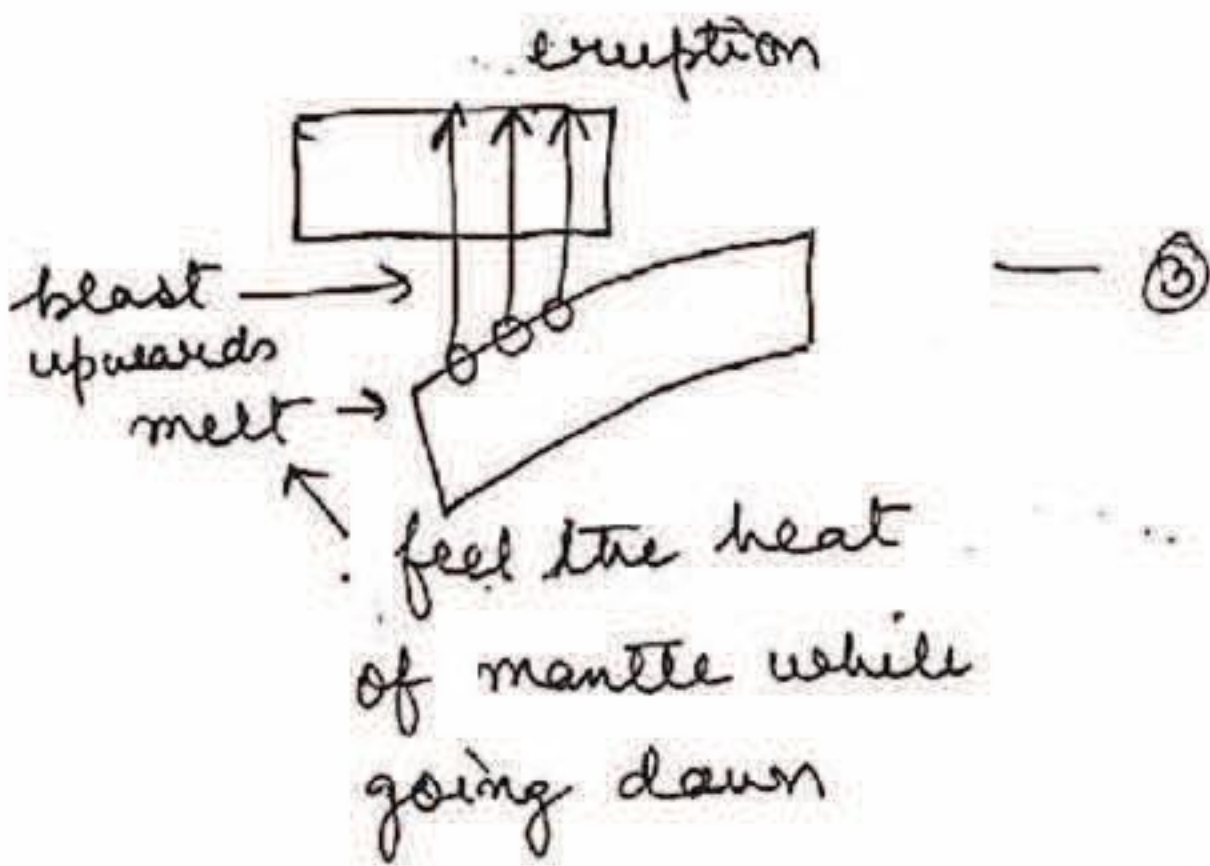 eruption
blast
upwards
melt
③
feel the heat
of mantle while
going down